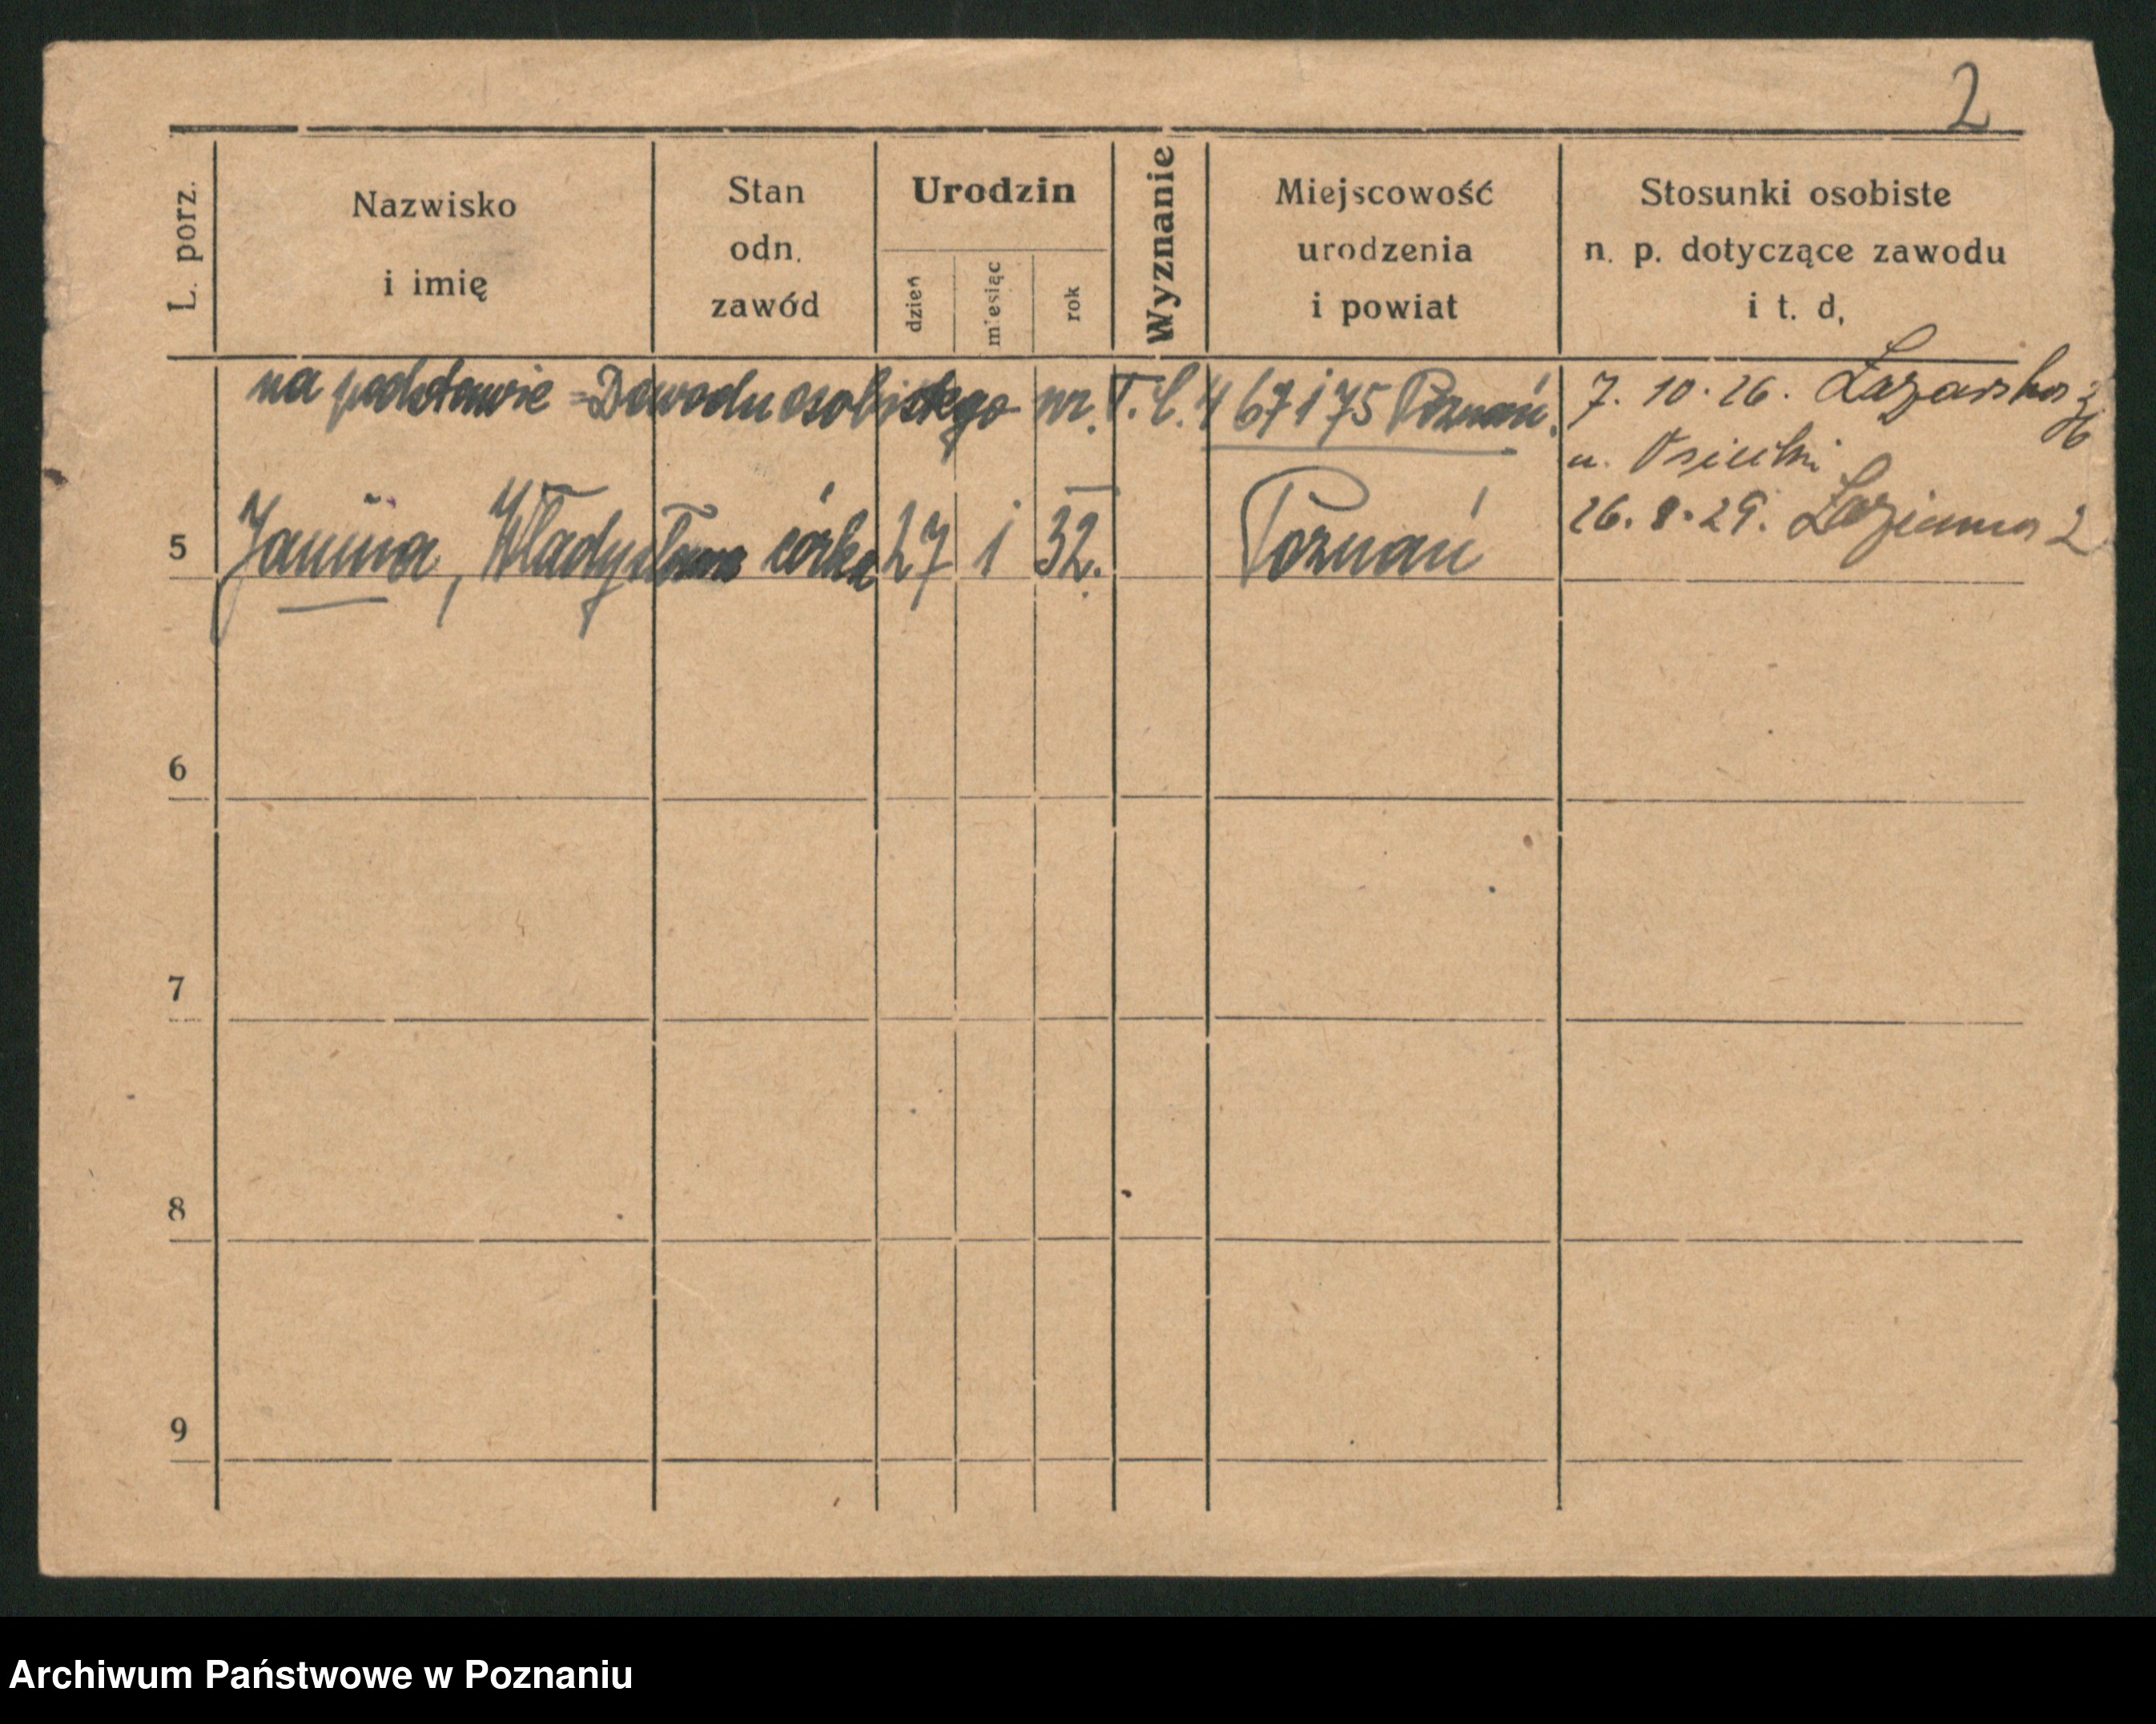 2
L. porz.
Nazwisko
i imię
Stan
odn.
zawód
Urodzin
dzień
miesiąc
rok
Wyznanie
Miejscowość
urodzenia
i powiat
Stosunki osobiste
n. p. dotyczące zawodu
i t. d.
na podstawie Dowodu osobistego nr. 467175 Poznań.
7. 10. 26.
u.
26. 8. 29. Łazienna 2
5 Janina, córka 27 i 32. Poznań
6
7
8
9
Archiwum Państwowe w Poznaniu